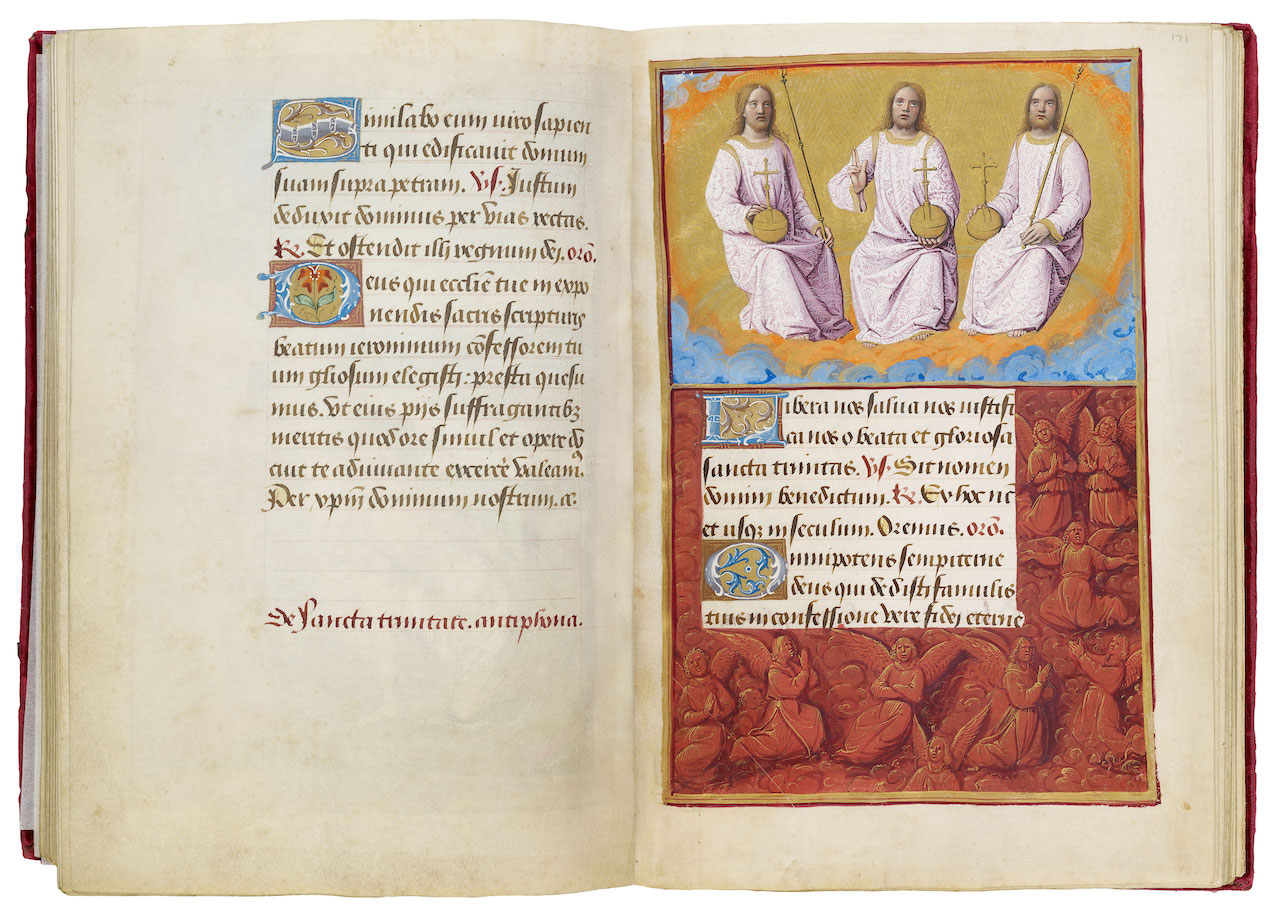 Similabo eum viro sapien
ti qui edificavit domum
suam supra petram. Vs. Justum
deduxit dominus per vias rectas.
R. Et ostendit illi regnum dei. orō.
Deus qui ecclīe tue in expo
nendis sacris scripturis
beatum ieronimum cōfessorem tu
um gliosum elegisti: presta quesu
mus. Ut eius pijs suffragantibꝫ
meritis quod ore simul et opere do
cuit te adiuvante exercēre valeamꝰ
Per xpm̄ dominum nostrum. ac.
de sancta trinitate. antiphona.
171
Libera nos salva nos iustifi
ca nos o beata et gloriosa
sancta trinitas. Vs. Sit nomen
domini benedictum. R. Ex hoc nc̄
et usqꝫ in seculum. Oremus. orō.
Omnipotens sempiterne
deus qui dedisti famulis
tuis in confessione vere fidei eterne